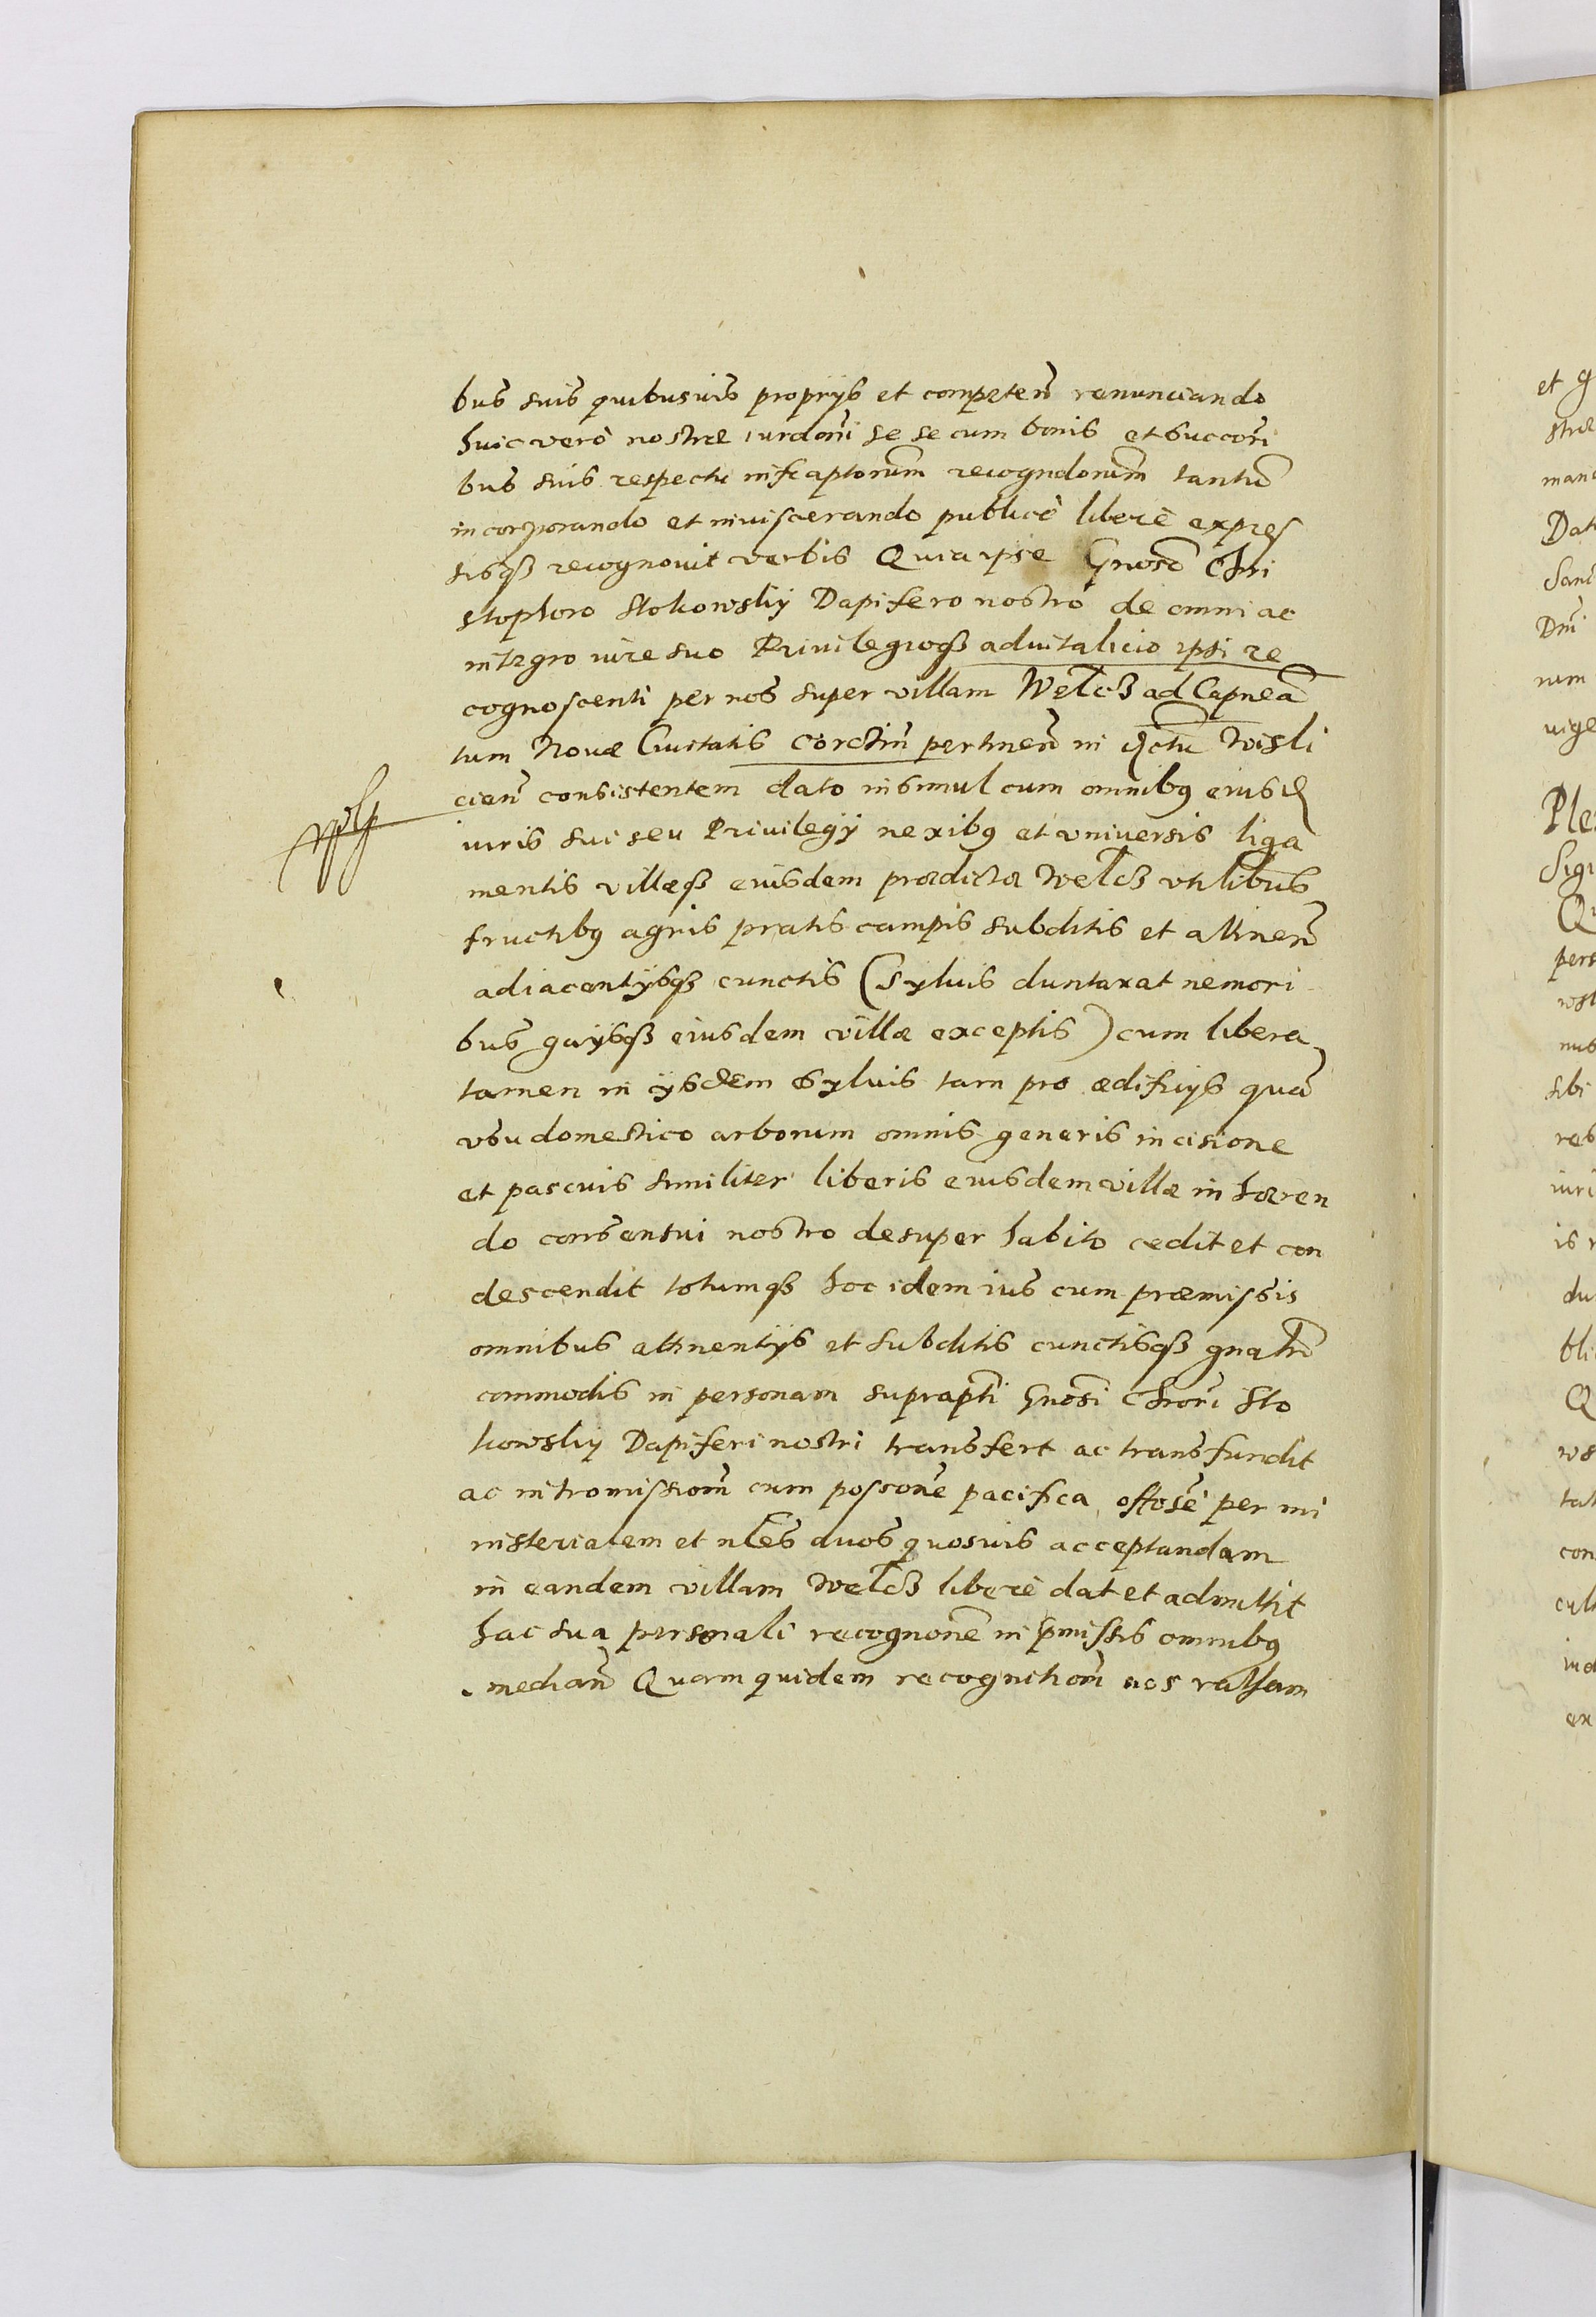 bus suis quibusuis proprijs et competeñ renunciando
huic verò nostræ iurdõni se se cum bonis et succori
bus suis respectu infcaptorum recogndorum tantũ
incorporando et inviscerando publicè liberè expres
sisqȝ recognovit verbis Quia ipse Gnoso Chri
stophoro Stokowskij Dapifero nostro de omni ac
integro iure suo Privilegioqȝ aduitalicio ipsi re
cognoscenti per nos super villam Welcȝ ad Capneã
tum Novæ Civitatis Corcziñ pertineñ in dctu Wisli
cieñ consistentem dato insimul cum omnibus eiusd
iuris sui seu Privilegij nexibus et vniversis liga
mentis villæqȝ eiusdem prædictæ Welcȝ vtilibus
fructibus agris pratis campis subditis et attineñ
adiacentijsqȝ cunctis (syluis duntaxat nemori
bus gaijsqȝ eiusdem villæ exceptis) cum libera
tamen in ijsdem syluis tam pro ædificijs quã
vsu domestico arborum omnis generis incisione
et pascuis similiter liberis eiusdem villæ inhæren
do consensui nostro desuper habito cedit et con
descendit totumqȝ hoc idem ius cum præmissis
omnibus attinentijs et subditis cunctisqȝ gnalr
commodis in personam suprapti Gnosi Chrori Sto
kowskij Dapiferi nostri transfert ac transfundit
ac intromissionem cum possone pacifica offose per mi
nisterialem et nles duos quosuis acceptandam
in eandem villam Welcȝ liberè dat et admittit
hac sua personali recognone in pmissis omnibus
mediañ Quam quidem recognitiom nos ratham
et
mand
Dat
Sanc
Dni
num
uige
Ple
Sig
Q
pers
sibi
res
iuri
du
bli
Q
con
cu
ex